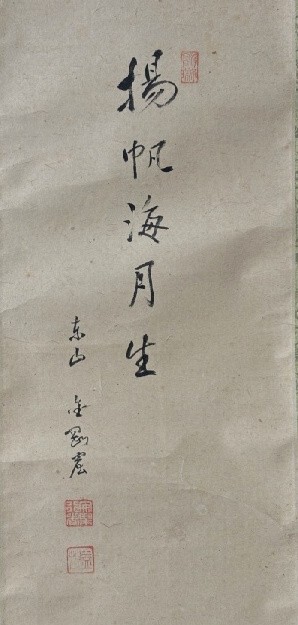 揚帆海月生
東山 金剛窟